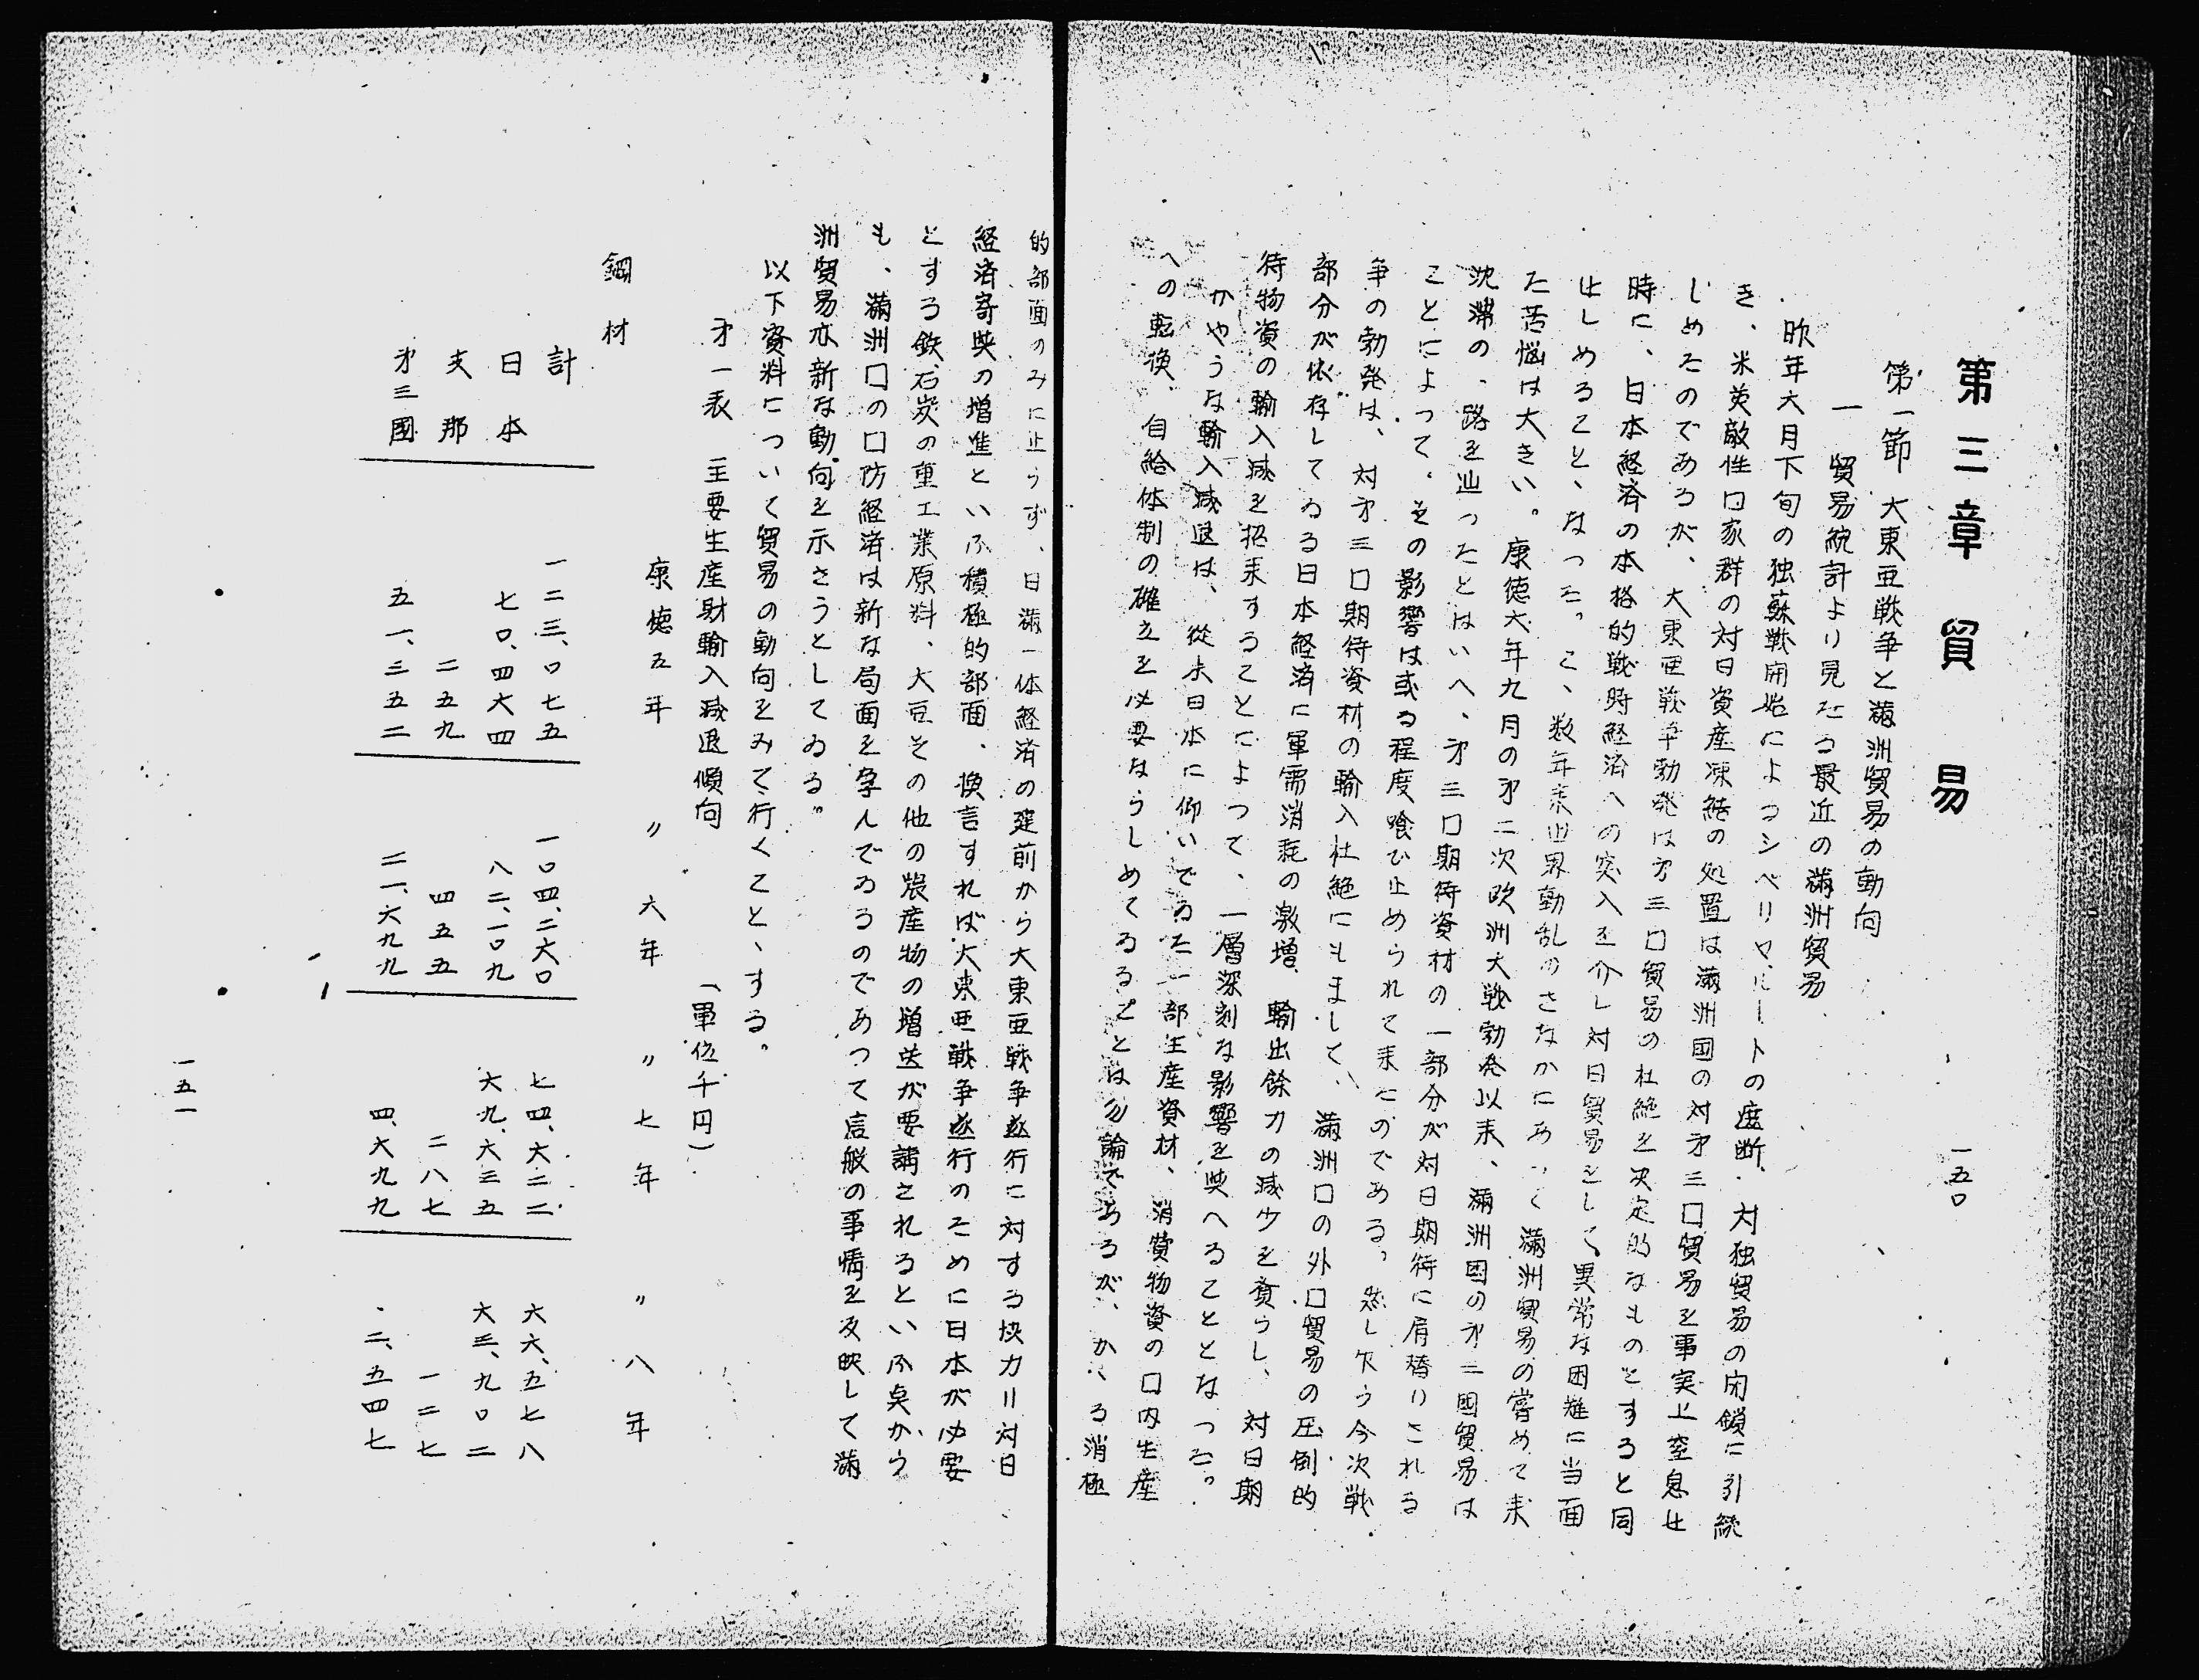 第三章 貿易
一五〇
第一節 大東亜戦争と満洲貿易の動向
一 貿易統計より見たる最近の満洲貿易
昨年六月下旬の独蘇戦開始によるシベリヤルートの度断、対独貿易の閉鎖に引続
き、米英敵性口家群の対日資産凍結の処置は満洲国の対才三口貿易を事実上窒息せ
しめたのであるが、大東亜戦争勃発は才三口貿易の杜絶を決定的なものとすると同
時に、日本経済の本格的戦時経済への突入を介し対日貿易をして異常な困難に当面
せしめること、なつた。こゝ数年来世界動乱のさなかにあつて満洲貿易の嘗めて来
た苦悩は大きい。康徳六年九月の才二次欧洲大戦勃発以来、満洲国の才三國貿易は
沈滞の、路を辿ったとはいへ、才三口期待資材の一部分が対日期待に肩替りされる
ことによって、その影響は或る程度喰ひ止めうれて来たのである。然し乍う今次戦
争の勃発は、対才三口期待資材の輸入杜絶にもまして、満洲口の外口貿易の圧倒的
部分が依存してゐる日本経済に軍需消耗の激増、輸出餘力の減少を賚らし、対日期
待物資の輸入減を招来することによつて、一層深刻な影響を與へることとなつた。
かやうな輸入減退は、従来日本に仰いでゐた一部生産資材、消費物資の口内生産
への転換、自給体制の確立を必要なうしめてゐることは勿論であるが、かゝる消極
的部面のみに止うず、日満一体経済の建前から大東亜戦争遂行に対する協力〃対日
経済寄與の増進といふ積極的部面、換言すれば大東亜戦争遂行のために日本が必要
とする鉄、石炭の重工業原料、大豆その他の農産物の増送が要請されるといふ点かう
も、満洲口の口防経済は新な局面を孕んでゐるのであつて這般の事情を反映して満
洲貿易亦新な動向を示さうとしてゐる。
以下資料について貿易の動向をみて行くこと、する。
才一表 主要生産財輸入減退傾向 (單位千円)
康徳五年 〃六年 〃七年 〃八年
鋼材
計 一二三、〇七五 一〇四、二六〇 七四、六二二 六六、五七八
日本 七〇、四六四 八二、一〇九 六九、六三五 六三、九〇二
支那 二五九 四五五 二八七 一二七
才三國 五一、三五二 二一、六九九 四、六九九 二、五四七
一五一